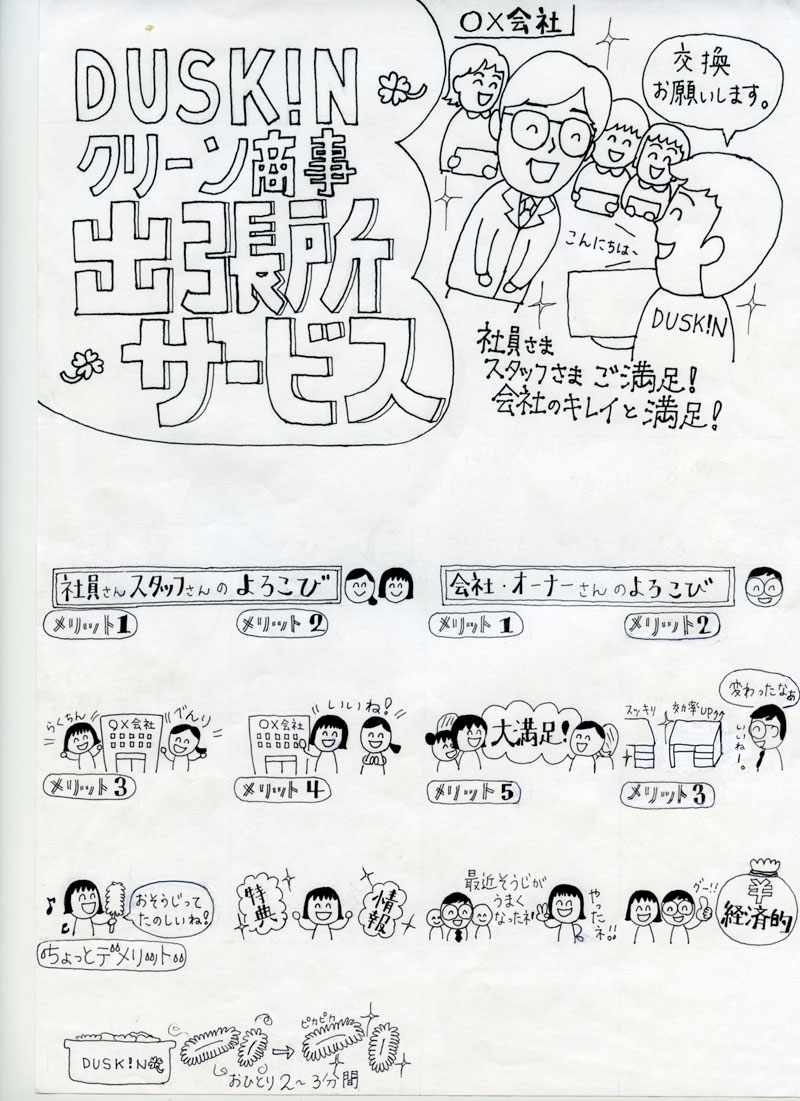 DUSK!N
クリーン商事
出張所
サービス
〇×会社
交換
お願いします。
こんにちは〜
DUSK!N
社員さま
スタッフさま ご満足!
会社のキレイと満足!
社員さんスタッフさんの よろこび
メリット1
メリット2
会社・オーナーさんのよろこび
メリット1
メリット2
らくちん
〇×会社
べんり
〇×会社
いいね!
大満足!
スッキリ
効率UP↑↑
変わったなぁ
いいねー。
メリット3
メリット4
メリット5
メリット3
♪
おそうじって
たのしいね!
特典
情報
最近そうじが
うまく
なったネ!
やったネ!!
グー!!
¥
経済的
ちょっとデメリット
DUSK!N
ピカピカ
おひとり2〜3分間